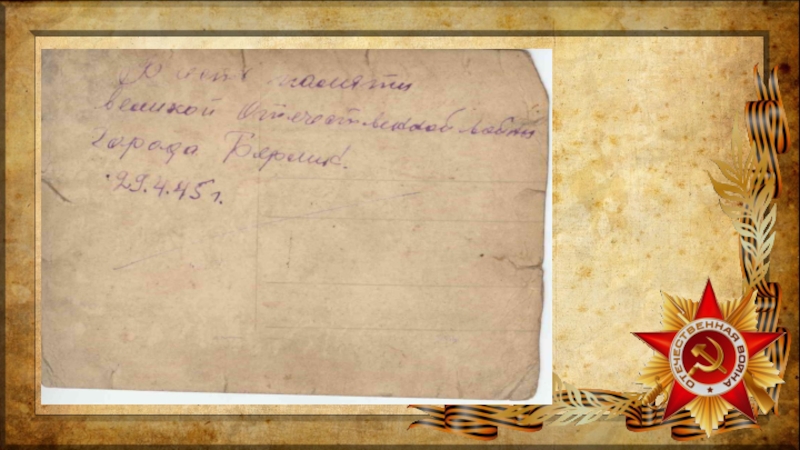 В честь памяти
великой Отечественной войны
города Берлин.
29.4.45 г.
ОТЕЧЕСТВЕННАЯ ВОЙНА